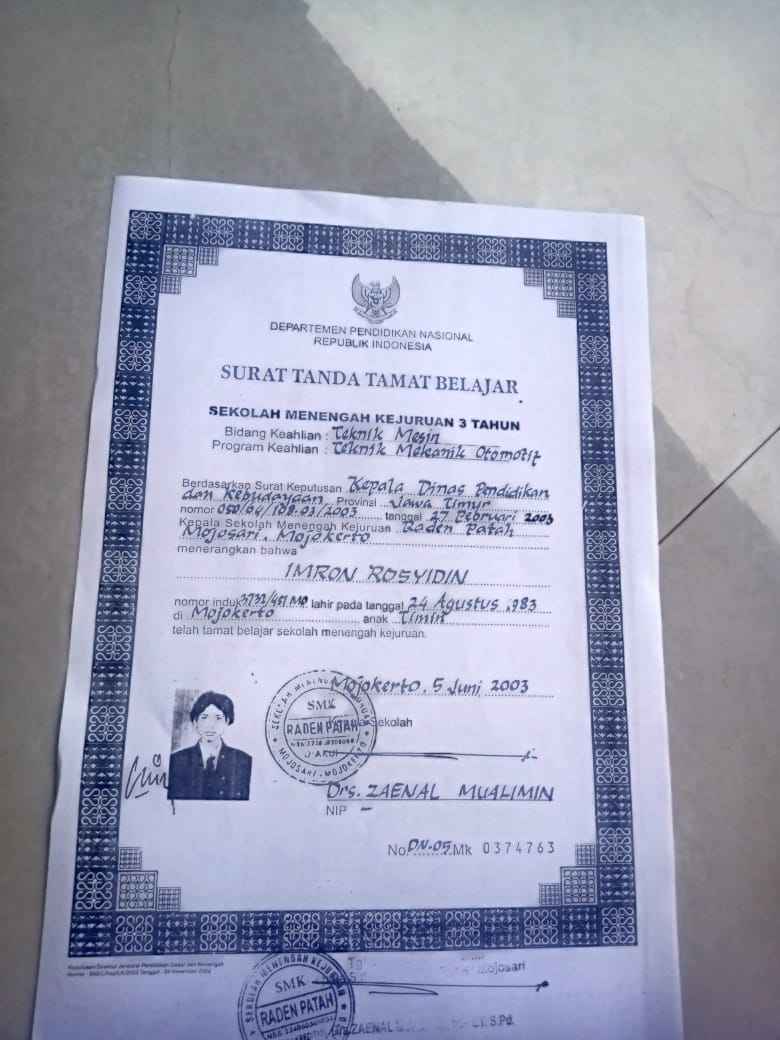 DEPARTEMEN PENDIDIKAN NASIONAL
REPUBLIK INDONESIA
SURAT TANDA TAMAT BELAJAR
SEKOLAH MENENGAH KEJURUAN 3 TAHUN
Bidang Keahlian : Teknik Mesin
Program Keahlian : Teknik Mekanik Otomotif
Berdasarkan Surat Keputusan Kepala Dinas Pendidikan
dan Kebudayaan Provinsi Jawa Timur
nomor 050/64/108.03/2003 tanggal 27 Februari 2003
Kepala Sekolah Menengah Kejuruan Raden Patah
Mojosari, Mojokerto
menerangkan bahwa
IMRON ROSYIDIN
nomor induk lahir pada tanggal 24 Agustus 1983
di Mojokerto anak Timin
telah tamat belajar sekolah menengah kejuruan.
Mojokerto, 5 Juni 2003
Sekolah
SMK
RADEN PATAH
MOJOSARI - MOJOKERTO
Drs. ZAENAL MUALIMIN
NIP -
No. DN-05 Mk 0374763
Mojosari
SEKOLAH MENENGAH KEJURUAN
SMK
RADEN PATAH
ZAENAL S.Pd.